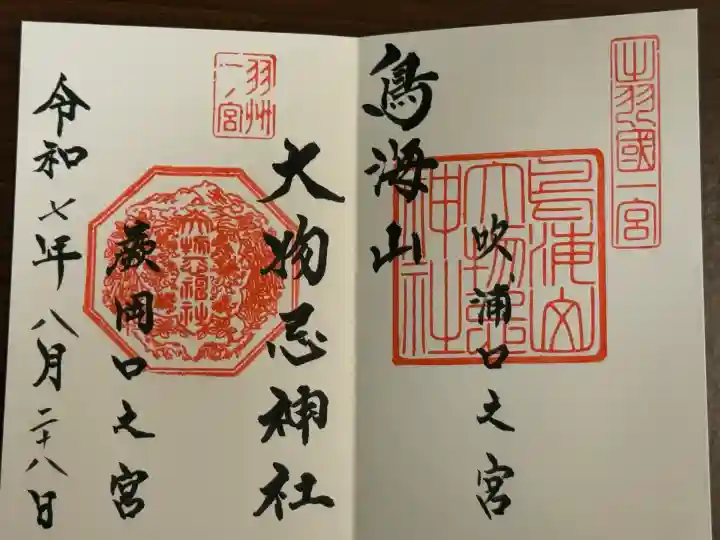 出羽國一宮
吹浦口之宮
鳥海山
大物忌神社
鳥海山
大物忌
神社
羽州
一ノ宮
蕨岡口之宮
大物忌神社
令和七年八月二十八日